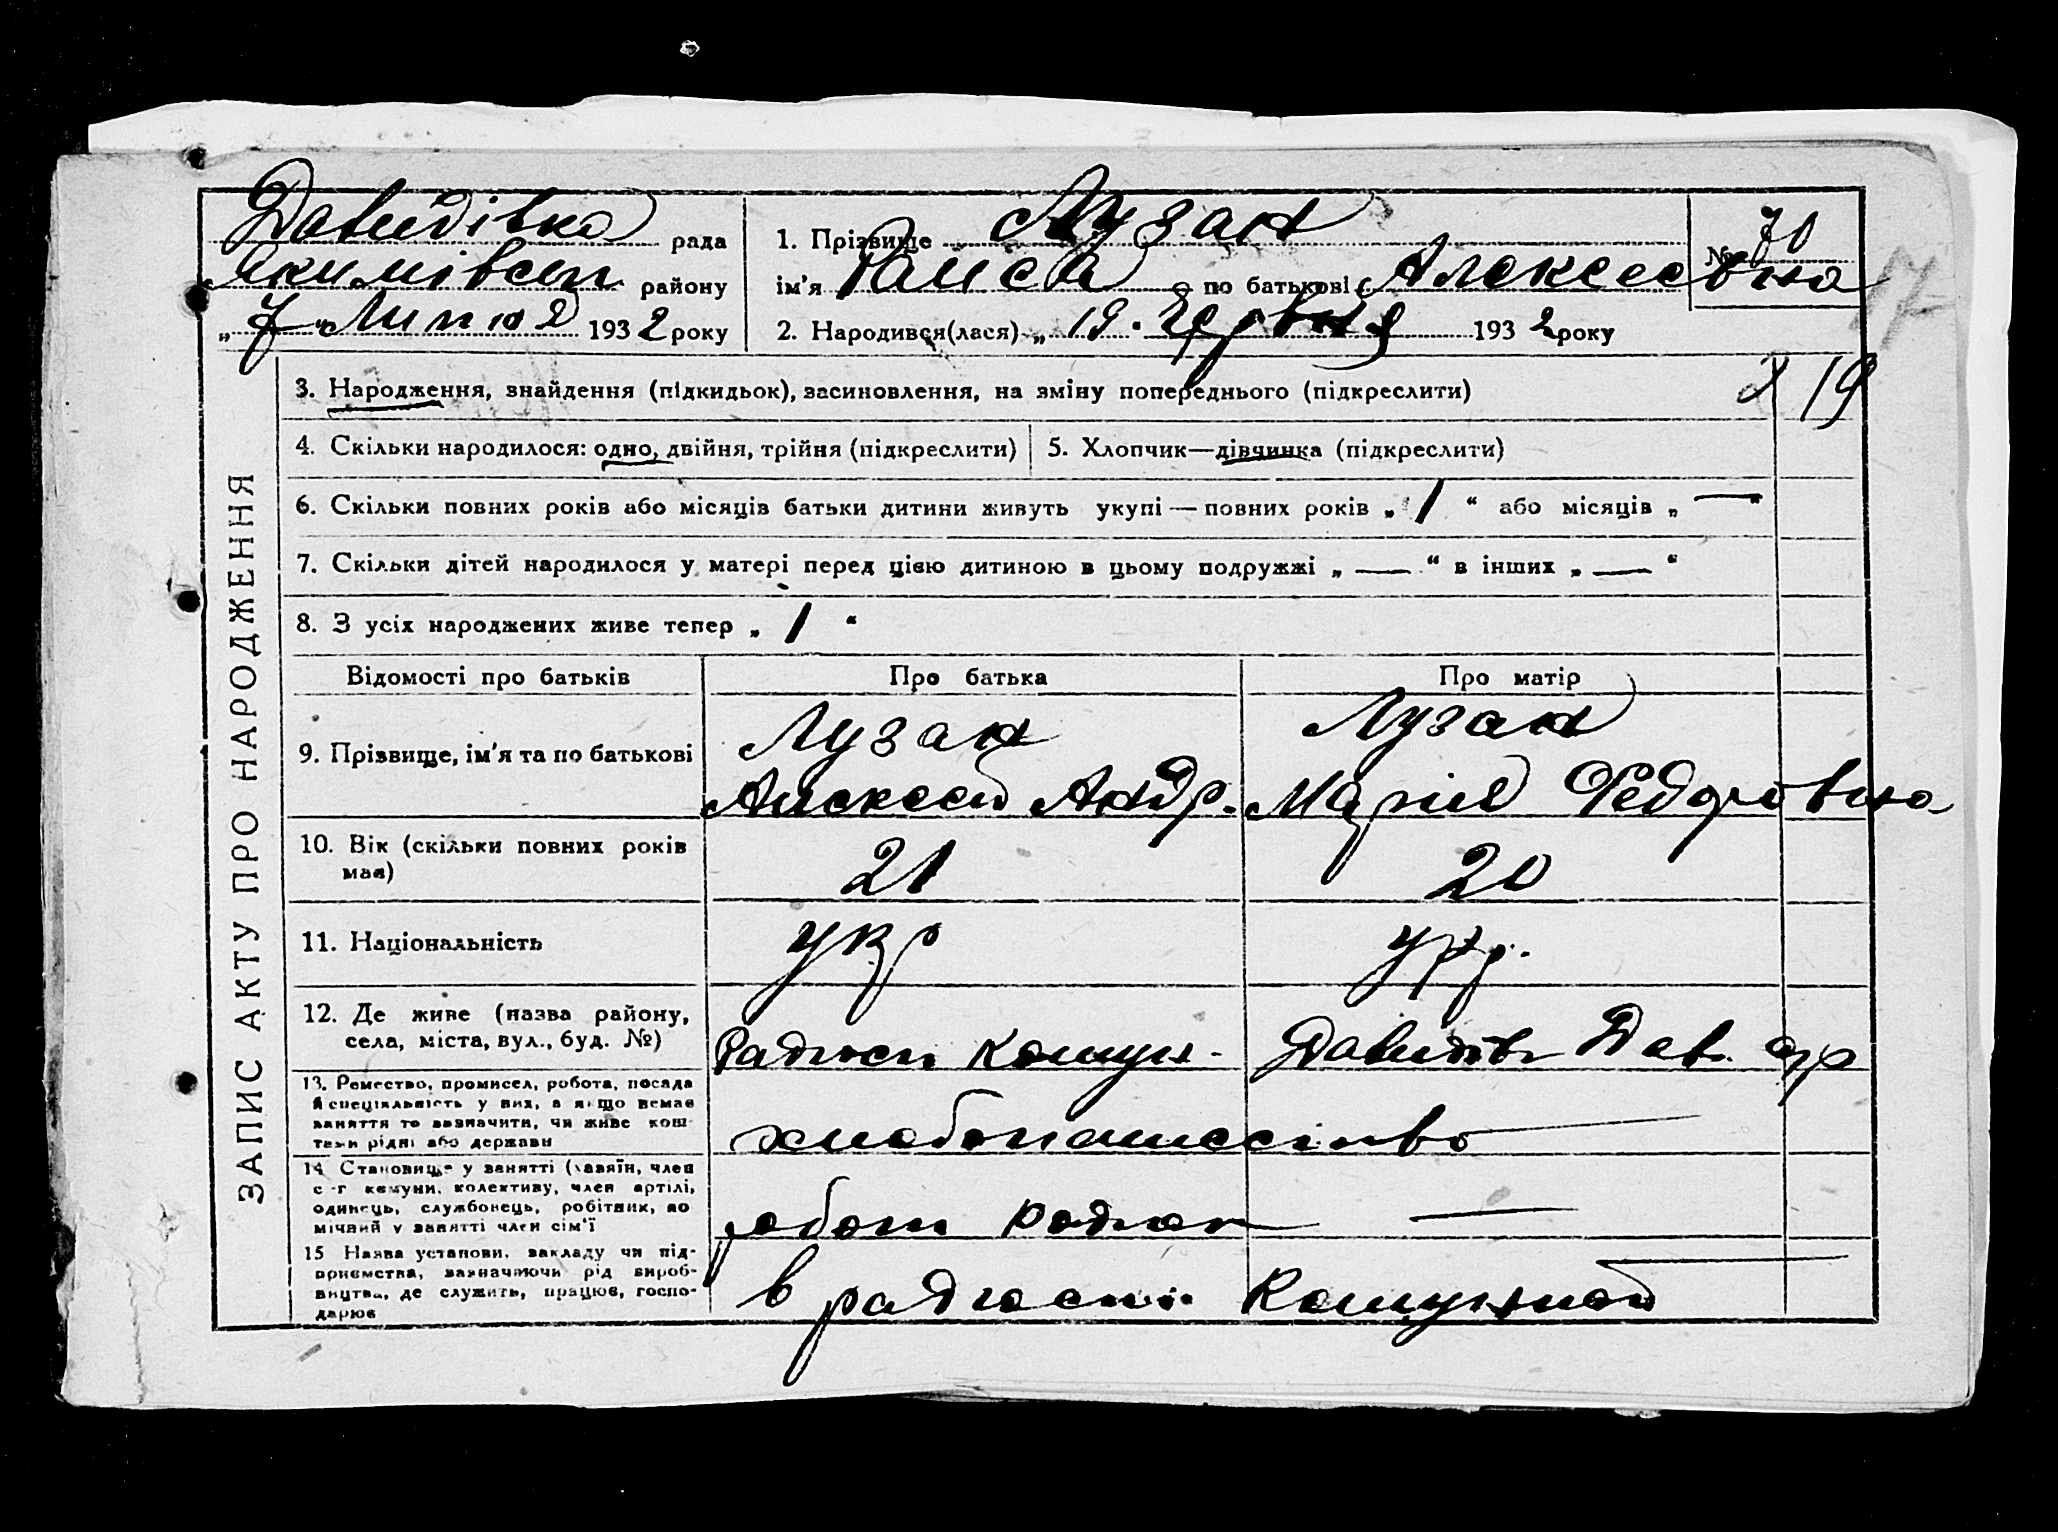 Давидівка рада
Якимівськ району
„ 7 " Липня 1932 року
1. Прізвище Лузан
№ 70
ім'я Раиса по батькові Алексеевна
17
2. Народився(лася) „ 19. Червня 1932 року
ЗАПИС АКТУ ПРО НАРОДЖЕННЯ
3. Народження, знайдення (підкидьок), засиновлення, на зміну попереднього (підкреслити)
19
4. Скільки народилося: одно, двійня, трійня (підкреслити)
5. Хлопчик—дівчинка (підкреслити)
6. Скільки повних років або місяців батьки дитини живуть укупі — повних років „ 1 " або місяців „ — "
7. Скільки дітей народилося у матері перед цією дитиною в цьому подружжі „ — " в інших „ — "
8. З усіх народжених живе тепер „ 1 "
Відомості про батьків Про батька Про матір
9. Прізвище, ім'я та по батькові
Лузан
Алексей Андр.
Лузан
Марія Федоровна
10. Вік (скільки повних років
має)
21
20
11. Національність
укр
укр.
12. Де живе (назва району,
села, міста, вул., буд. №)
Радгосп Комун.
Давидів Дав.
13. Ремество, промисел, робота, посада
й спеціяльність у них, а якщо немає
заняття то зазначити, чи живе кош-
тами рідні або держави
хлебопашество
14. Становище у занятті (хазяїн, член
с.-г комуни, колективу, член артілі,
одинець, службовець, робітник, по
мічний у занятті член сім'ї
робот радгосп —
15 Назва установи, закладу чи під-
приємства, зазначаючи рід вироб-
ництва, де служить, працює, госпо-
дарює
в радгоспі Комунной